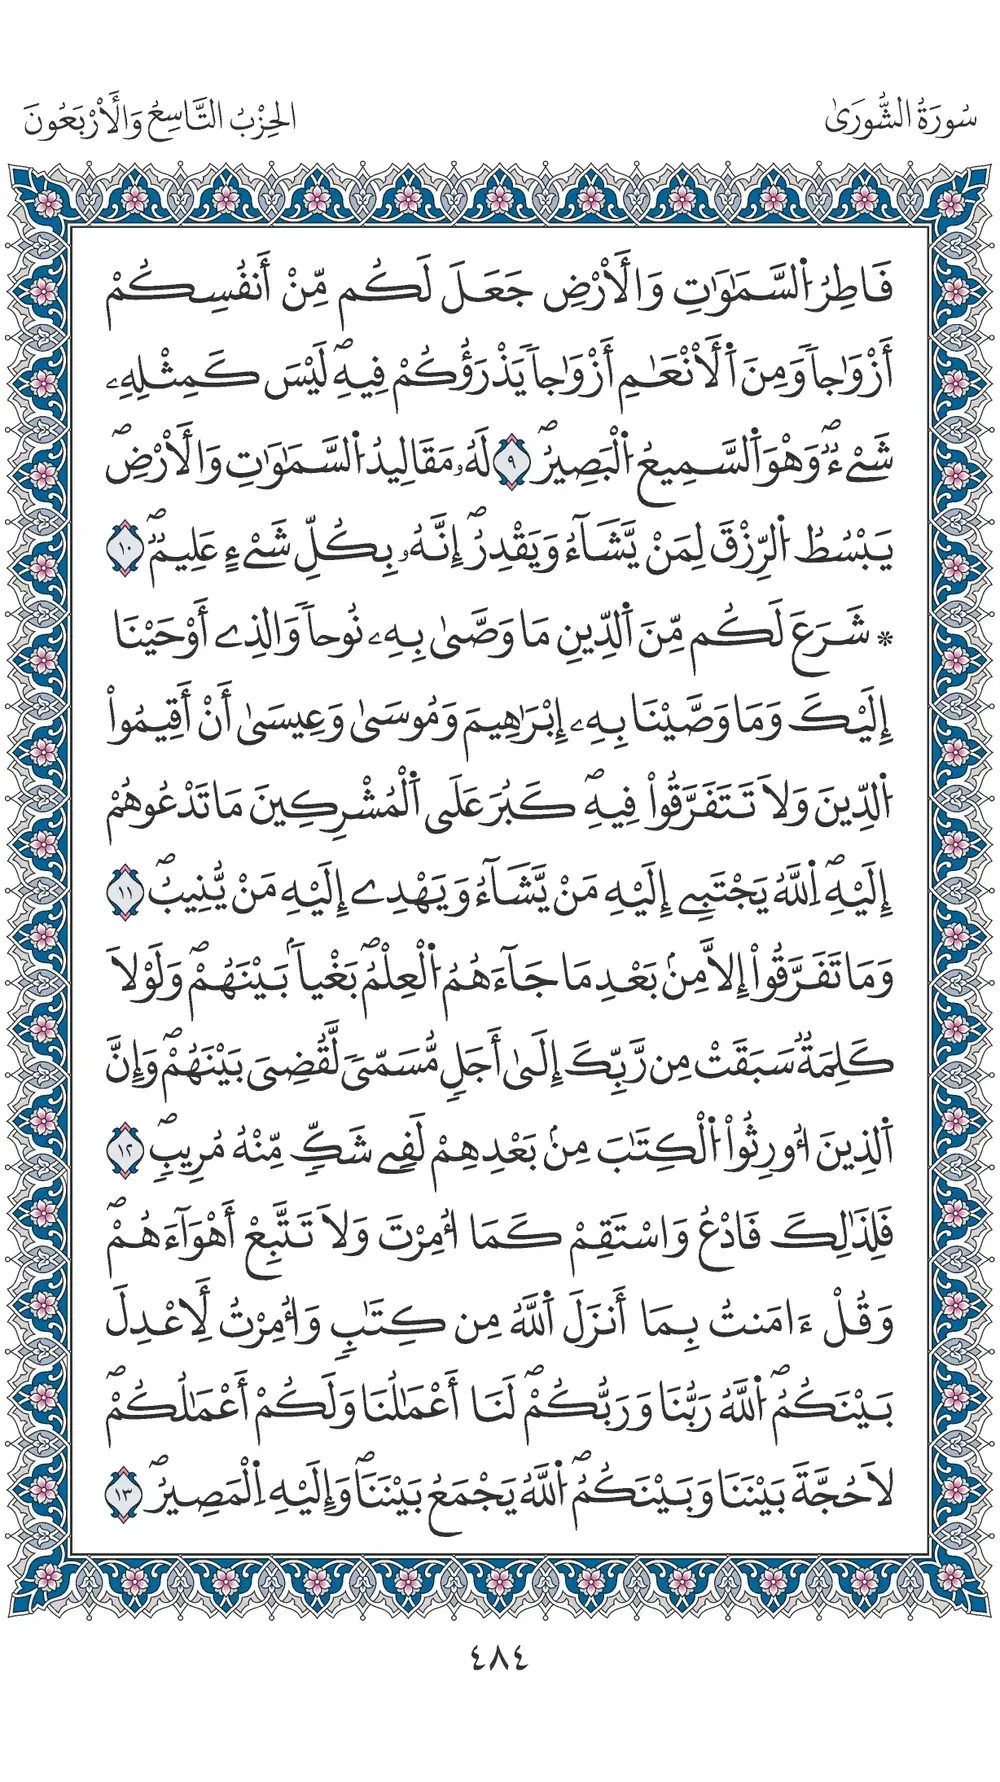 سُورَةُ الشُّورَىٰ
الحِزْبُ التَّاسِعُ وَالْأَرْبَعُونَ
فَاطِرُ اُ۬لسَّمَٰوَٰتِ وَالْأَرْضِ جَعَلَ لَكُم مِّنْ أَنفُسِكُمْ
أَزْوَٰجاٗ وَمِنَ اَ۬لْأَنْعَٰمِ أَزْوَٰجاٗ يَذْرَؤُكُمْ فِيهِۖ لَيْسَ كَمِثْلِهِۦ
شَےْءٞۖ وَهْوَ اَ۬لسَّمِيعُ اُ۬لْبَصِيرُۖ ٩ لَهُۥ مَقَالِيدُ اُ۬لسَّمَٰوَٰتِ وَالْأَرْضِۖ
يَبْسُطُ اُ۬لرِّزْقَ لِمَنْ يَّشَآءُ وَيَقْدِرُۖ إِنَّهُۥ بِكُلِّ شَےْءٍ عَلِيمٞۖ ١٠
* شَرَعَ لَكُم مِّنَ اَ۬لدِّينِ مَا وَصَّىٰ بِهِۦ نُوحاٗ وَالذِےٓ أَوْحَيْنَا
إِلَيْكَ وَمَا وَصَّيْنَا بِهِۦٓ إِبْرَٰهِيمَ وَمُوسَىٰ وَعِيسَىٰٓ أَنْ أَقِيمُواْ
اُ۬لدِّينَ وَلَا تَتَفَرَّقُواْ فِيهِۖ كَبُرَ عَلَى اَ۬لْمُشْرِكِينَ مَا تَدْعُوهُمُۥٓ
إِلَيْهِۖ اِ۬للَّهُ يَجْتَبِےٓ إِلَيْهِ مَنْ يَّشَآءُ وَيَهْدِےٓ إِلَيْهِ مَنْ يُّنِيبُۖ ١١
وَمَا تَفَرَّقُوٓاْ إِلَّا مِنۢ بَعْدِ مَا جَآءَهُمُ اُ۬لْعِلْمُۖ بَغْياَۢ بَيْنَهُمْۖ وَلَوْلَا
كَلِمَةٞ سَبَقَتْ مِن رَّبِّكَ إِلَىٰٓ أَجَلٖ مُّسَمّىٗ لَّقُضِيَ بَيْنَهُمْۖ وَإِنَّ
اَ۬لذِينَ أُورِثُواْ اُ۬لْكِتَٰبَ مِنۢ بَعْدِهِمْ لَفِے شَكّٖ مِّنْهُ مُرِيبٖۖ ١٢
فَلِذَٰلِكَ فَادْعُ وَاسْتَقِمْ كَمَآ أُمِرْتَ وَلَا تَتَّبِعْ أَهْوَآءَهُمْۖ
وَقُلْ ءَامَنتُ بِمَآ أَنزَلَ اَ۬للَّهُ مِن كِتَٰبٖ وَأُمِرْتُ لِأَعْدِلَ
بَيْنَكُمُۖ اُ۬للَّهُ رَبُّنَا وَرَبُّكُمْۖ لَنَآ أَعْمَٰلُنَا وَلَكُمْ أَعْمَٰلُكُمْۖ
لَا حُجَّةَ بَيْنَنَا وَبَيْنَكُمُۖ اُ۬للَّهُ يَجْمَعُ بَيْنَنَاۖ وَإِلَيْهِ اِ۬لْمَصِيرُۖ ١٣
٤٨٤